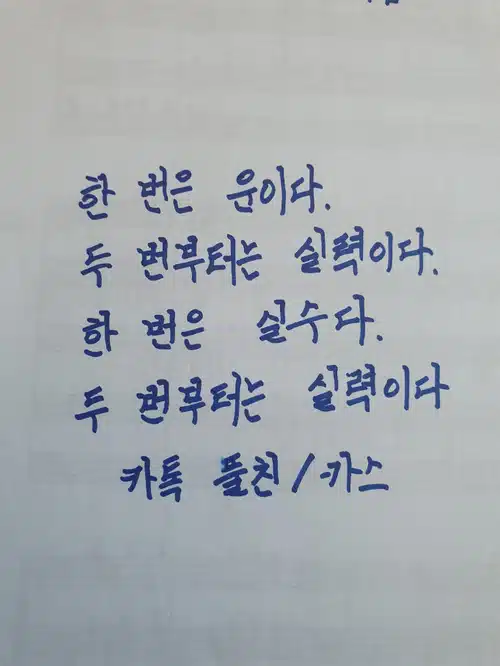 한 번은 운이다.
두 번부터는 실력이다.
한 번은 실수다.
두 번부터는 실력이다
카톡 플친 / 카스